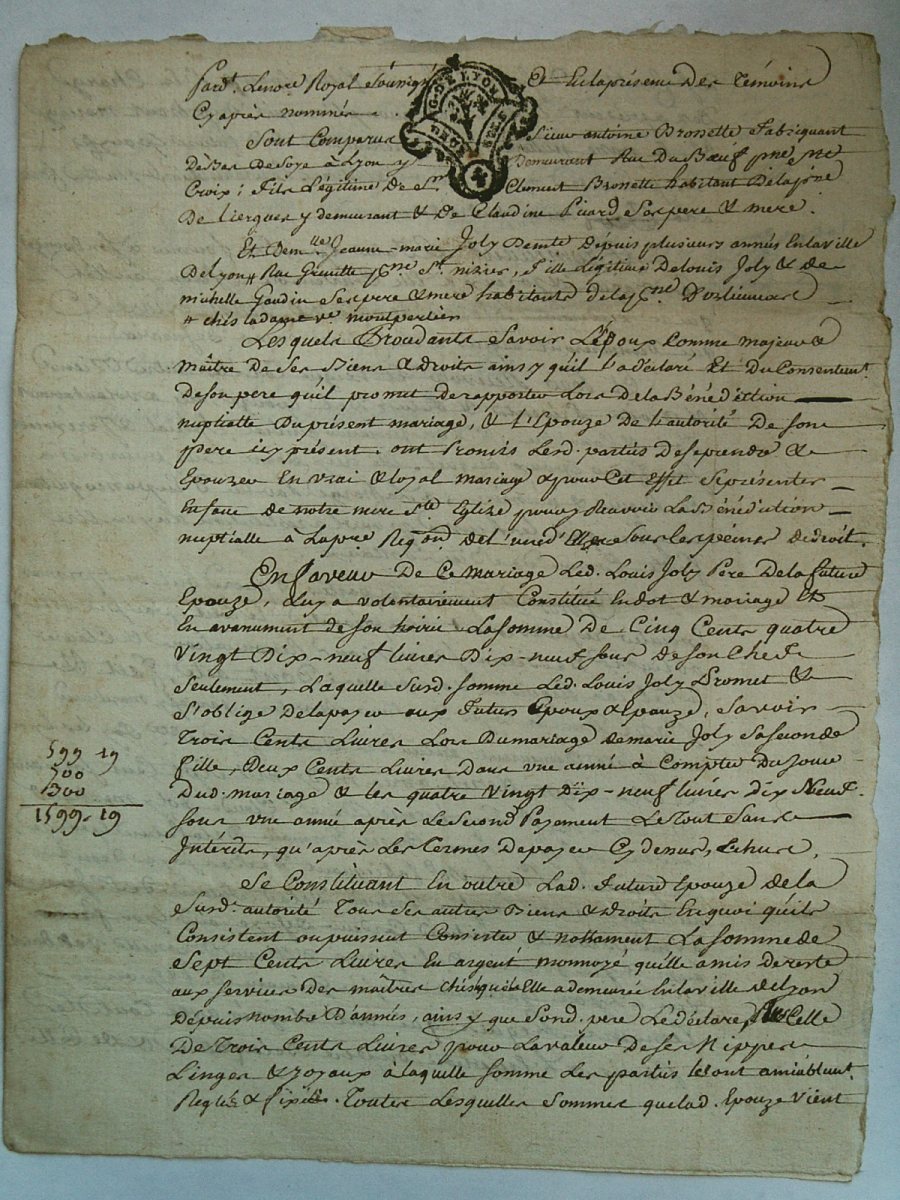 Pard.t Lenore Royal Soussigné Et En la présence Des Temoins
Cy après nommés.
G. DE LYON
DEUX SOLS
Sont Comparus Sieur antoine Brossette Fabriquant
De Bas De Soye à Lyon y Demeurant Rue Du Bœuf psse Ste
Croix; Fils Légitime De Sr. Clement Brossette habitant De la psse
De Liergues y demeurant & De Claudine Picard Ses pere & mere.
Et Dem.lle Jeanne-marie Joly Demte Depuis plusieurs années En la ville
De Lyon # Rue Grenette psse St. nizier, Fille Légitime De Louis Joly & de
michelle Gaudin Ses pere & mere habitants de la psse D'
# chés la dame ve. montperlier
Lesquels Procédants Savoir L'Epoux Comme majeur &
maître De Ses Biens & Droits ainsy qu'il l'a déclaré Et Du Consentemt.
De son pere qu'il promet De rapporter Lors De la Bénédiction
nuptialle Du présent mariage, & L'Epouze De L'autorité De Son
pere icy présent. ont Promis Lesd. partiés De Se prendre &
Epouzer En vrai & loyal mariage & pour Cet Effet Se présenter
En face De notre mere Ste Eglize pour y Recevoir La Bénédiction
nuptialle à La pre. Reqon. de L'une d'Elles Sous Les peines de droit.
En faveur De Ce mariage Led. Louis Joly Pere De la future
Epouze, Luy a volontairement Constitué En dot & mariage Et
En avancement de Son hoirie La Somme De Cinq Cents quatre
Vingt Dix-neuf livres Dix-neuf Sous De Son Chef
Seulement, Laquelle Susd. Somme Led. Louis Joly Promet &
S'oblige De la payer aux Futurs Epoux & Epouze, Savoir
Trois Cents Livres Lors Du mariage de marie Joly Sa Seconde
fille, Deux Cents Livres Dans une année à Compter Du Jour
Dud. mariage & les quatre Vingt Dix-neuf livres Dix Neuf
Sous une année après Le Second Payement Le Tout Sans
Intérêts, qu'après Les Termes De payer Cy dessus, Echus.
599 19
700
300
1599. 19
Se Constituant En outre Lad. Future Epouze de la
Susd. autorité Tous Ses autres Biens & droits En quoi qu'ils
Consistent ou puissent Consister & nottament La Somme de
Sept Cents Livres En argent monnoyé qu'elle a mis De reste
aux Services Des maîtres chés qui Elle a demeurée En la ville de Lyon
Depuis nombre D'années, ainsy que Sond. pere Le déclare, Celle
De Trois Cents Livres pour La valeur De Ses Nippes
Linges & Joyaux à laquelle Somme Les parties Les ont amiablemt.
Reglés & fixés. Toutes Lesquelles Sommes que lad. Epouze vient